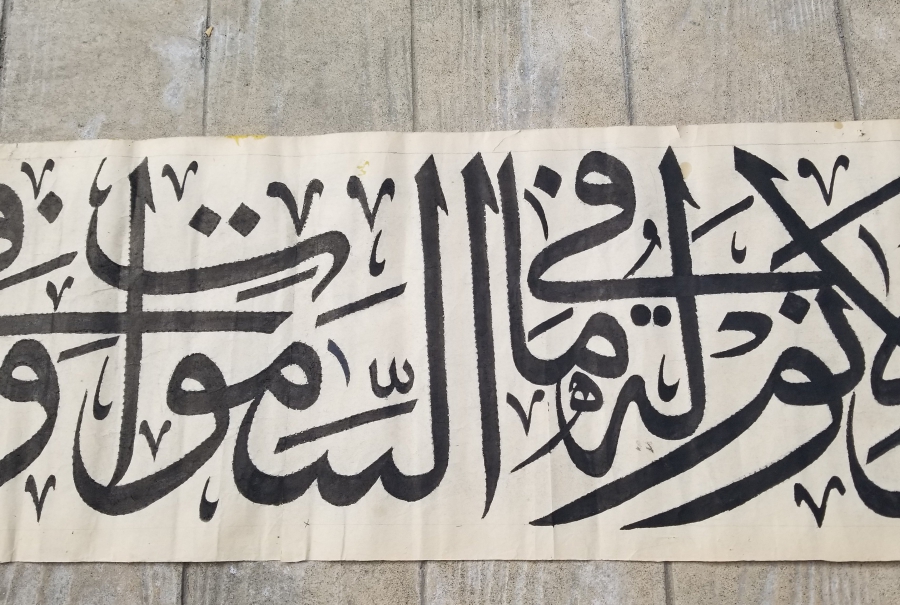 ولا نوم له ما في السموات و